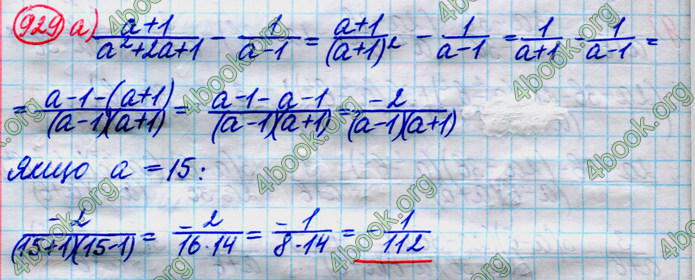 929 а) (a+1)/(a²+2a+1) - 1/(a-1) = (a+1)/(a+1)² - 1/(a-1) = 1/(a+1) - 1/(a-1) =
= (a-1-(a+1))/((a-1)(a+1)) = (a-1-a-1)/((a-1)(a+1)) = -2/((a-1)(a+1))
якщо a = 15:
-2/((15+1)(15-1)) = -2/(16·14) = -1/(8·14) = -1/112
4book.org
4book.org
4book.org
4book.org
4book.org
4book.org